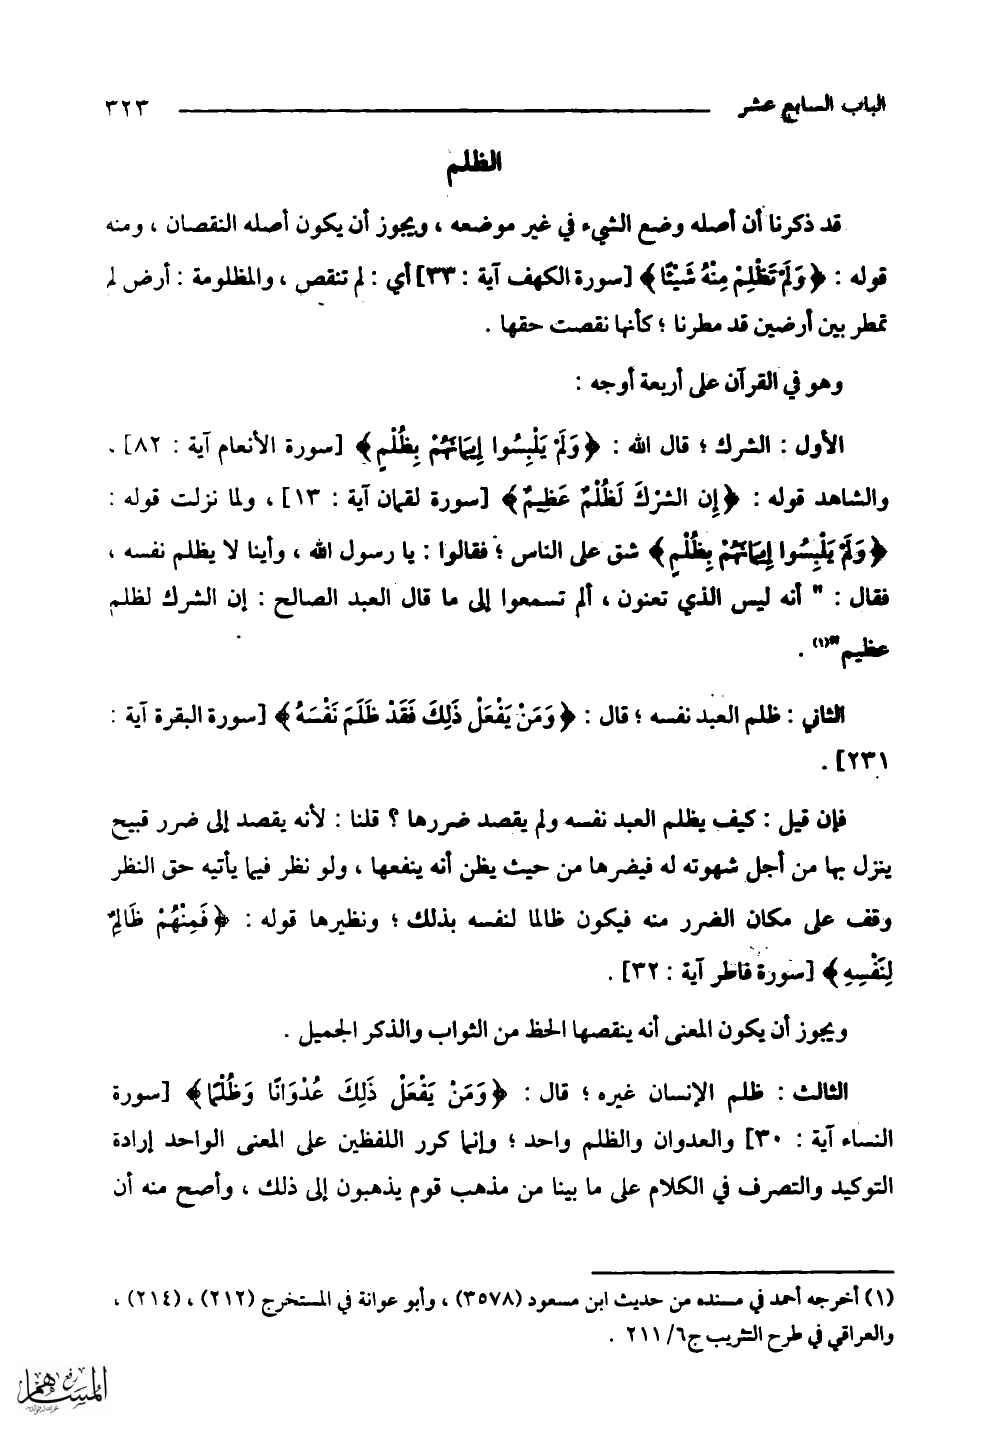 الباب السابع عشر ٣٢٣
الظلم
قد ذكرنا أن أصله وضع الشيء في غير موضعه ، ويجوز أن يكون أصله النقصان ، ومنه
قوله : ﴿وَلَمْ تَظْلِمْ مِنْهُ شَيْئًا﴾ [سورة الكهف آية : ٣٣] أي : لم تنقص ، والمظلومة : أرض لم
تمطر بين أرضين قد مطرنا ؛ كأنها نقصت حقها .
وهو في القرآن على أربعة أوجه :
الأول : الشرك ؛ قال الله : ﴿وَلَمْ يَلْبِسُوا إِيمَانَهُمْ بِظُلْمٍ﴾ [سورة الأنعام آية : ٨٢] .
والشاهد قوله : ﴿إِن الشرْكَ لَظُلْمٌ عَظِيمٌ﴾ [سورة لقمان آية : ١٣] ، ولما نزلت قوله :
﴿وَلَمْ يَلْبِسُوا إِيمَانَهُمْ بِظُلْمٍ﴾ شق على الناس ؛ فقالوا : يا رسول الله ، وأينا لا يظلم نفسه ،
فقال : " أنه ليس الذي تعنون ، ألم تسمعوا إلى ما قال العبد الصالح : إن الشرك لظلم
عظيم"(١) .
الثاني : ظلم العبد نفسه ؛ قال : ﴿وَمَنْ يَفْعَلْ ذَلِكَ فَقَدْ ظَلَمَ نَفْسَهُ﴾ [سورة البقرة آية :
٢٣١] .
فإن قيل : كيف يظلم العبد نفسه ولم يقصد ضررها ؟ قلنا : لأنه يقصد إلى ضرر قبيح
ينزل بها من أجل شهوته له فيضرها من حيث يظن أنه ينفعها ، ولو نظر فيما يأتيه حق النظر
وقف على مكان الضرر منه فيكون ظالما لنفسه بذلك ؛ ونظيرها قوله : ﴿فَمِنْهُمْ ظَالِمٌ
لِنَفْسِهِ﴾ [سورة فاطر آية : ٣٢] .
ويجوز أن يكون المعنى أنه ينقصها الحظ من الثواب والذكر الجميل .
الثالث : ظلم الإنسان غيره ؛ قال : ﴿وَمَنْ يَفْعَلْ ذَلِكَ عُدْوَانًا وَظُلْمًا﴾ [سورة
النساء آية : ٣٠] والعدوان والظلم واحد ؛ وإنما كرر اللفظين على المعنى الواحد إرادة
التوكيد والتصرف في الكلام على ما بينا من مذهب قوم يذهبون إلى ذلك ، وأصح منه أن
(١) أخرجه أحمد في مسنده من حديث ابن مسعود (٣٥٧٨) ، وأبو عوانة في المستخرج (٢١٢) ، (٢١٤) ،
والعراقي في طرح التثريب ج٦/ ٢١١ .